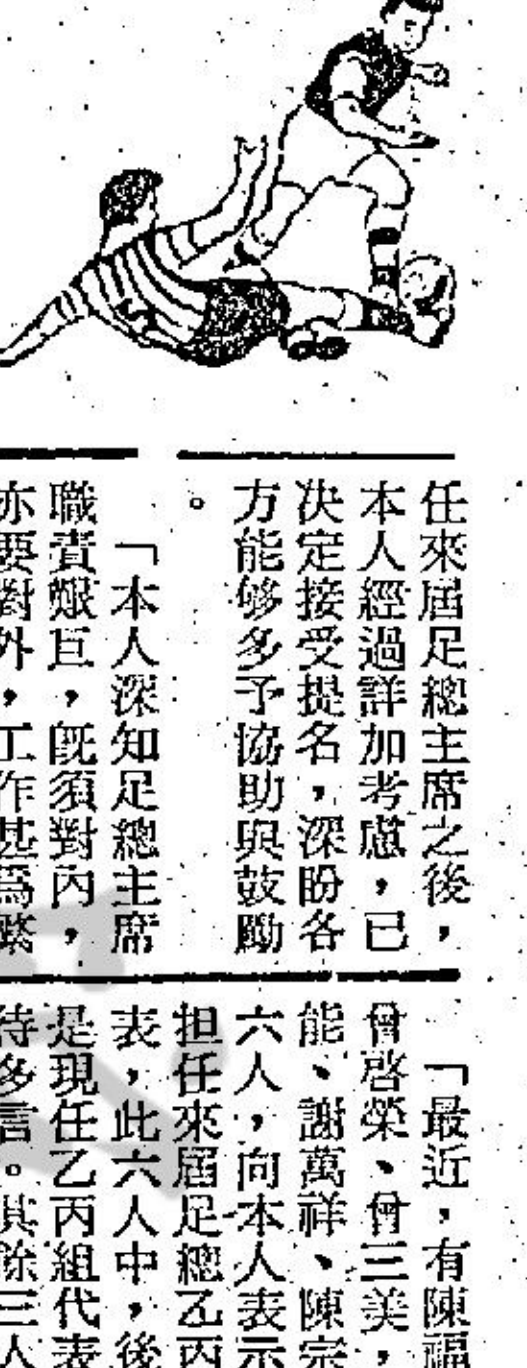 任來屆足總主席之後，
本人經過詳加考慮，已
决定接受提名，深盼各
方能够多予協助與鼓勵
。
「本人深知足總主席
職責艱巨，旣須對內，
亦要對外，工作甚爲繁
「最近，有陳福
曾啓榮、曾三美，
能、謝萬祥、陳宗
六人，向本人表示
担任來屆足總乙丙
表，此六人中，後
是現任乙丙組代表
待多言。其餘三人